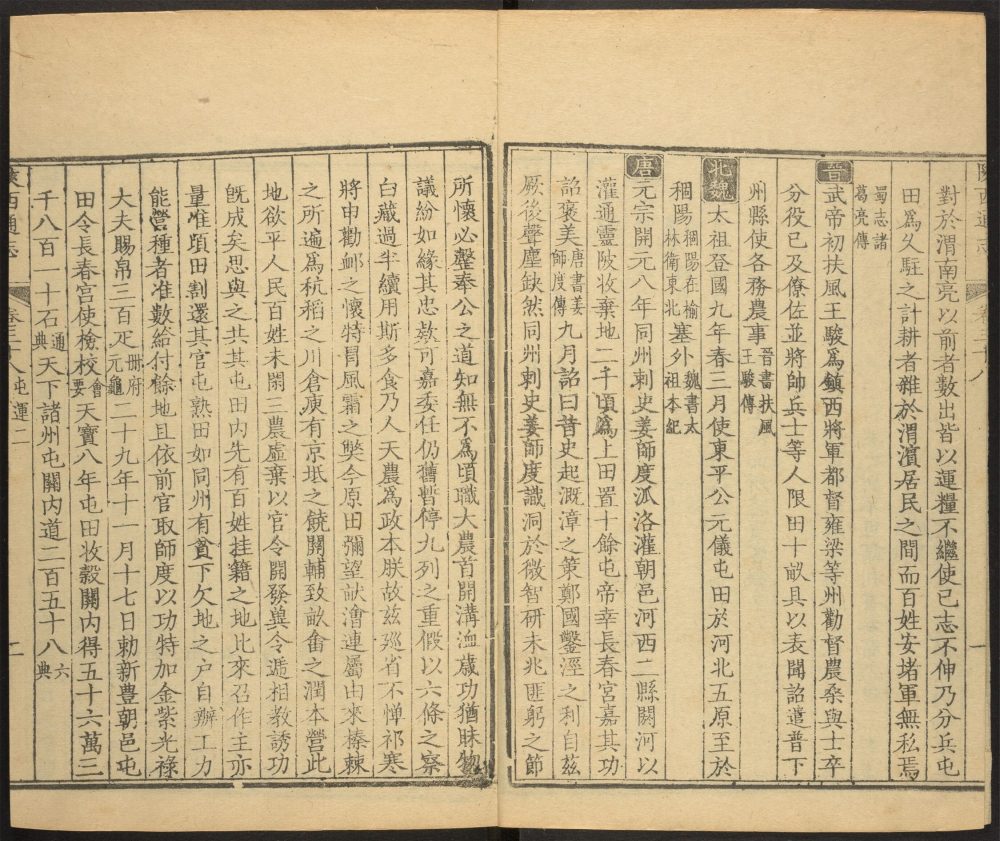 陝西通志 卷三十八 一
對於渭南亮以前者數出皆以運糧不繼使已志不伸乃分兵屯
田爲久駐之計耕者雜於渭濱居民之間而百姓安堵軍無私焉
蜀志諸葛亮傳
晉武帝初扶風王駿爲鎮西將軍都督雍梁等州勸督農桑與士卒
分役已及僚佐並將帥兵士等人限田十畝具以表聞詔遣普下
州縣使各務農事晉書扶風王駿傳
北魏太祖登國九年春三月使東平公元儀屯田於河北五原至於
稒陽稒陽在榆林衛東北塞外魏書太祖本紀
唐元宗開元八年同州刺史姜師度泒洛灌朝邑河西二縣閼河以
灌通靈陂收棄地二千頃爲上田置十餘屯帝幸長春宮嘉其功
詔褒美唐書姜師度傳九月詔曰昔史起漑漳之策鄭國鑿涇之利自茲
厥後聲塵缺然同州刺史姜師度識洞於微智研未兆匪躬之節
所懷必罄奉公之道知無不爲頃職大農首開溝洫歲功猶昧物
議紛如緣其忠欵可嘉委任仍舊暫停九列之重假以六條之察
白藏過半績用斯多食乃人天農爲政本朕故茲廵省不憚祁寒
將申勸卹之懷特冐風霜之樊今原田彌望畎澮連屬由來榛棘
之所遍爲秔稻之川倉庾有京坻之饒關輔致畝畬之潤本營此
地欲平人民百姓未閑三農虛棄以官令開發與令遞相教誘功
旣成矣思與之共其屯田內先有百姓挂籍之地比來召作主亦
量唯頃田割還其官屯熟田如同州有貧下欠地之户自辦工力
能營種者准數給付餘地且依前官取師度以功特加金紫光祿
大夫賜帛三百疋冊府元龜二十九年十一月十七日勅新豐朝邑屯
田令長春宮使檢校會要天寶八年屯田收穀關內得五十六萬三
千八百一十石通典天下諸州屯關內道二百五十八六典
陝西通志 卷三十八 屯運二 二